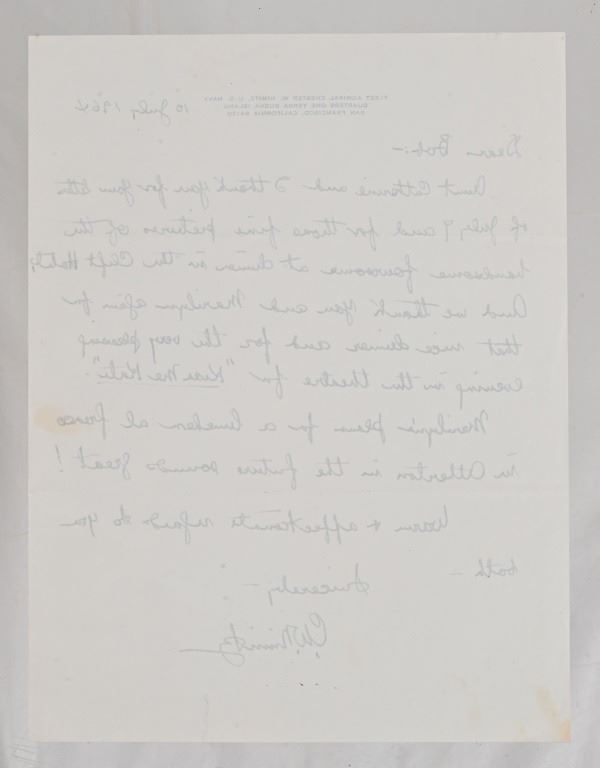 FLEET ADMIRAL CHESTER W. NIMITZ, U.S. NAVY
QUARTERS ONE YERBA BUENA ISLAND
SAN FRANCISCO, CALIFORNIA 94130
10 July 1964
Dear Bob:-
Aunt Catherine and I thank you for your letter
of July 9 and for those fine pictures of the
handsome foursome at dinner in the Clift Hotel;
And we thank you and Marilyn again for
that nice dinner and for the very pleasing
evening in the theatre for "Kiss Me Kate".
Marilyn's plan for a luncheon al fresco
in Atherton in the future sounds great!
Warm & affectionate regards to you
both -
Sincerely -
C.W. Nimitz